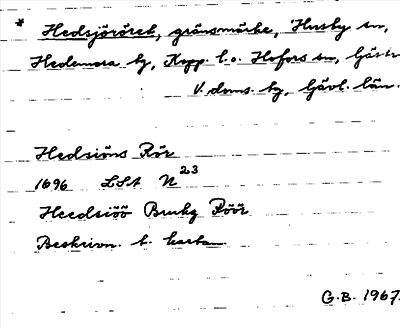 * Hedsjöröret, gränsmärke, Husby sn,
Hedemora tg, Kopp. l. o. Hofors sn, Gästr
V. doms. tg, Gävl. län.
Hedsiöns Rör
1696 LSA N 23
Heedsiöö Brukz Röör
Beskrivn. t. karta
G.B. 1967.